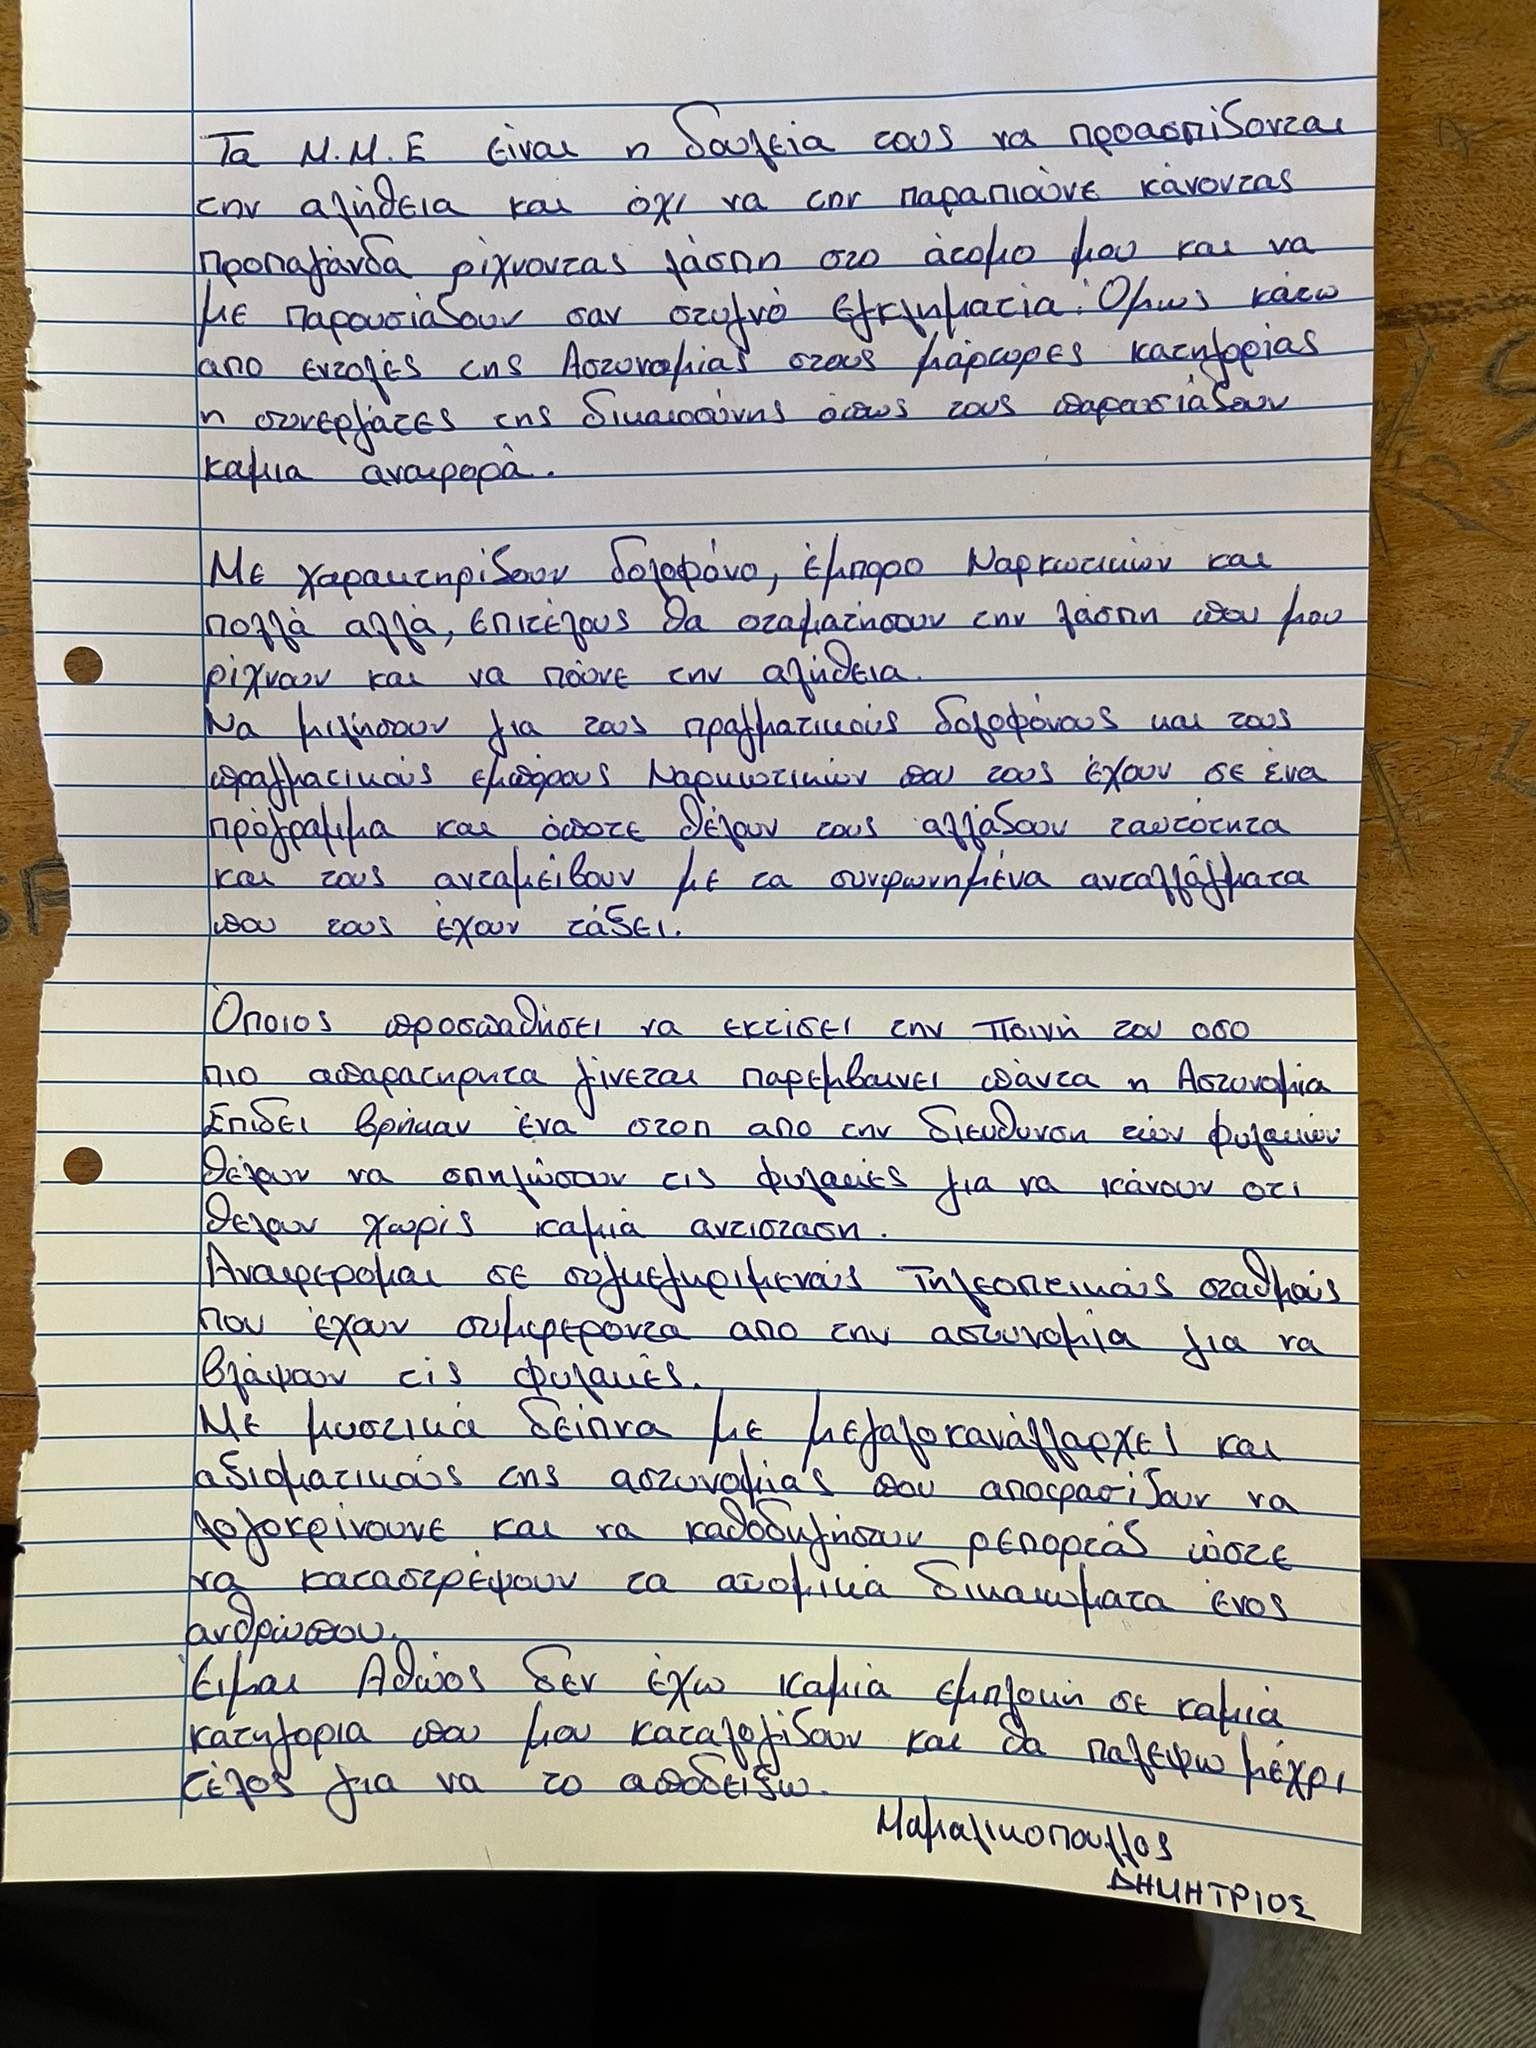 Τα Μ.Μ.Ε είναι η δουλεία τους να προασπίζονται
την αλήθεια και όχι να την παραπιούνε κάνοντας
προπαγάνδα ρίχνοντας λάσπη στο άτομο μου και να
με παρουσιάζουν σαν στυγνό εγκληματία. Όμως κάτω
απο εντολές της Αστυνομίας στους μάρτυρες κατηγορίας
η συνεργάτες της δικαιοσύνης όπως τους παρουσιάζουν
καμια αναφορά.
Με χαρακτηρίζουν δολοφόνο, έμπορο Ναρκωτικών και
πολλά αλλά, επιτέλους θα σταματήσουν την λάσπη που μου
ρίχνουν και να πούνε την αλήθεια.
Να μιλήσουν για τους πραγματικούς δολοφόνους και τους
πραγματικούς εμπόρους Ναρκωτικών που τους έχουν σε ένα
πρόγραμμα και όποτε θέλουν τους αλλάζουν ταυτότητα
και τους ανταμείβουν με τα συνφωνημένα ανταλλάγματα
που τους έχουν τάξει.
Όποιος προσπαθήσει να εκτίσει την ποινή του οσο
πιο απαρατηρητα γίνεται παρεμβαινει πάντα η Αστυνομία
Επιδει βρήκαν ένα στοπ απο την διευθυνση των φυλακών
θέλουν να σπηλώσουν τις φυλακές για να κάνουν οτι
θελουν χωρίς καμιά αντισταση.
Αναφερομαι σε συγκεγκριμενους Τηλεοπτικούς σταθμούς
που έχουν συμφεροντα απο την αστυνομία για να
βλάψουν τις φυλακές.
Με μυστικά δείπνα με μεγαλοκανάλλαρχες και
αξιοματικούς της αστυνομίας που αποφασίζουν να
λογοκρίνουνε και να καθοδηγήσουν ρεπορτάζ ώστε
να καταστρέψουν τα ατομικά δικαιωματα ένος
ανθρώπου.
Είμαι Αθώος δεν έχω καμιά εμπλοκή σε καμιά
κατηγορια που μου καταλογίζουν και θα παλεψω μέχρι
τέλος για να το αποδειξω.
Μαμαλικοπουλλος
ΔΗΜΗΤΡΙΟΣ